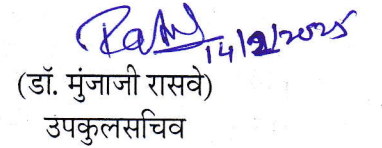 14/2/2025
(डॉ. मुंजाजी रासवे)
उपकुलसचिव